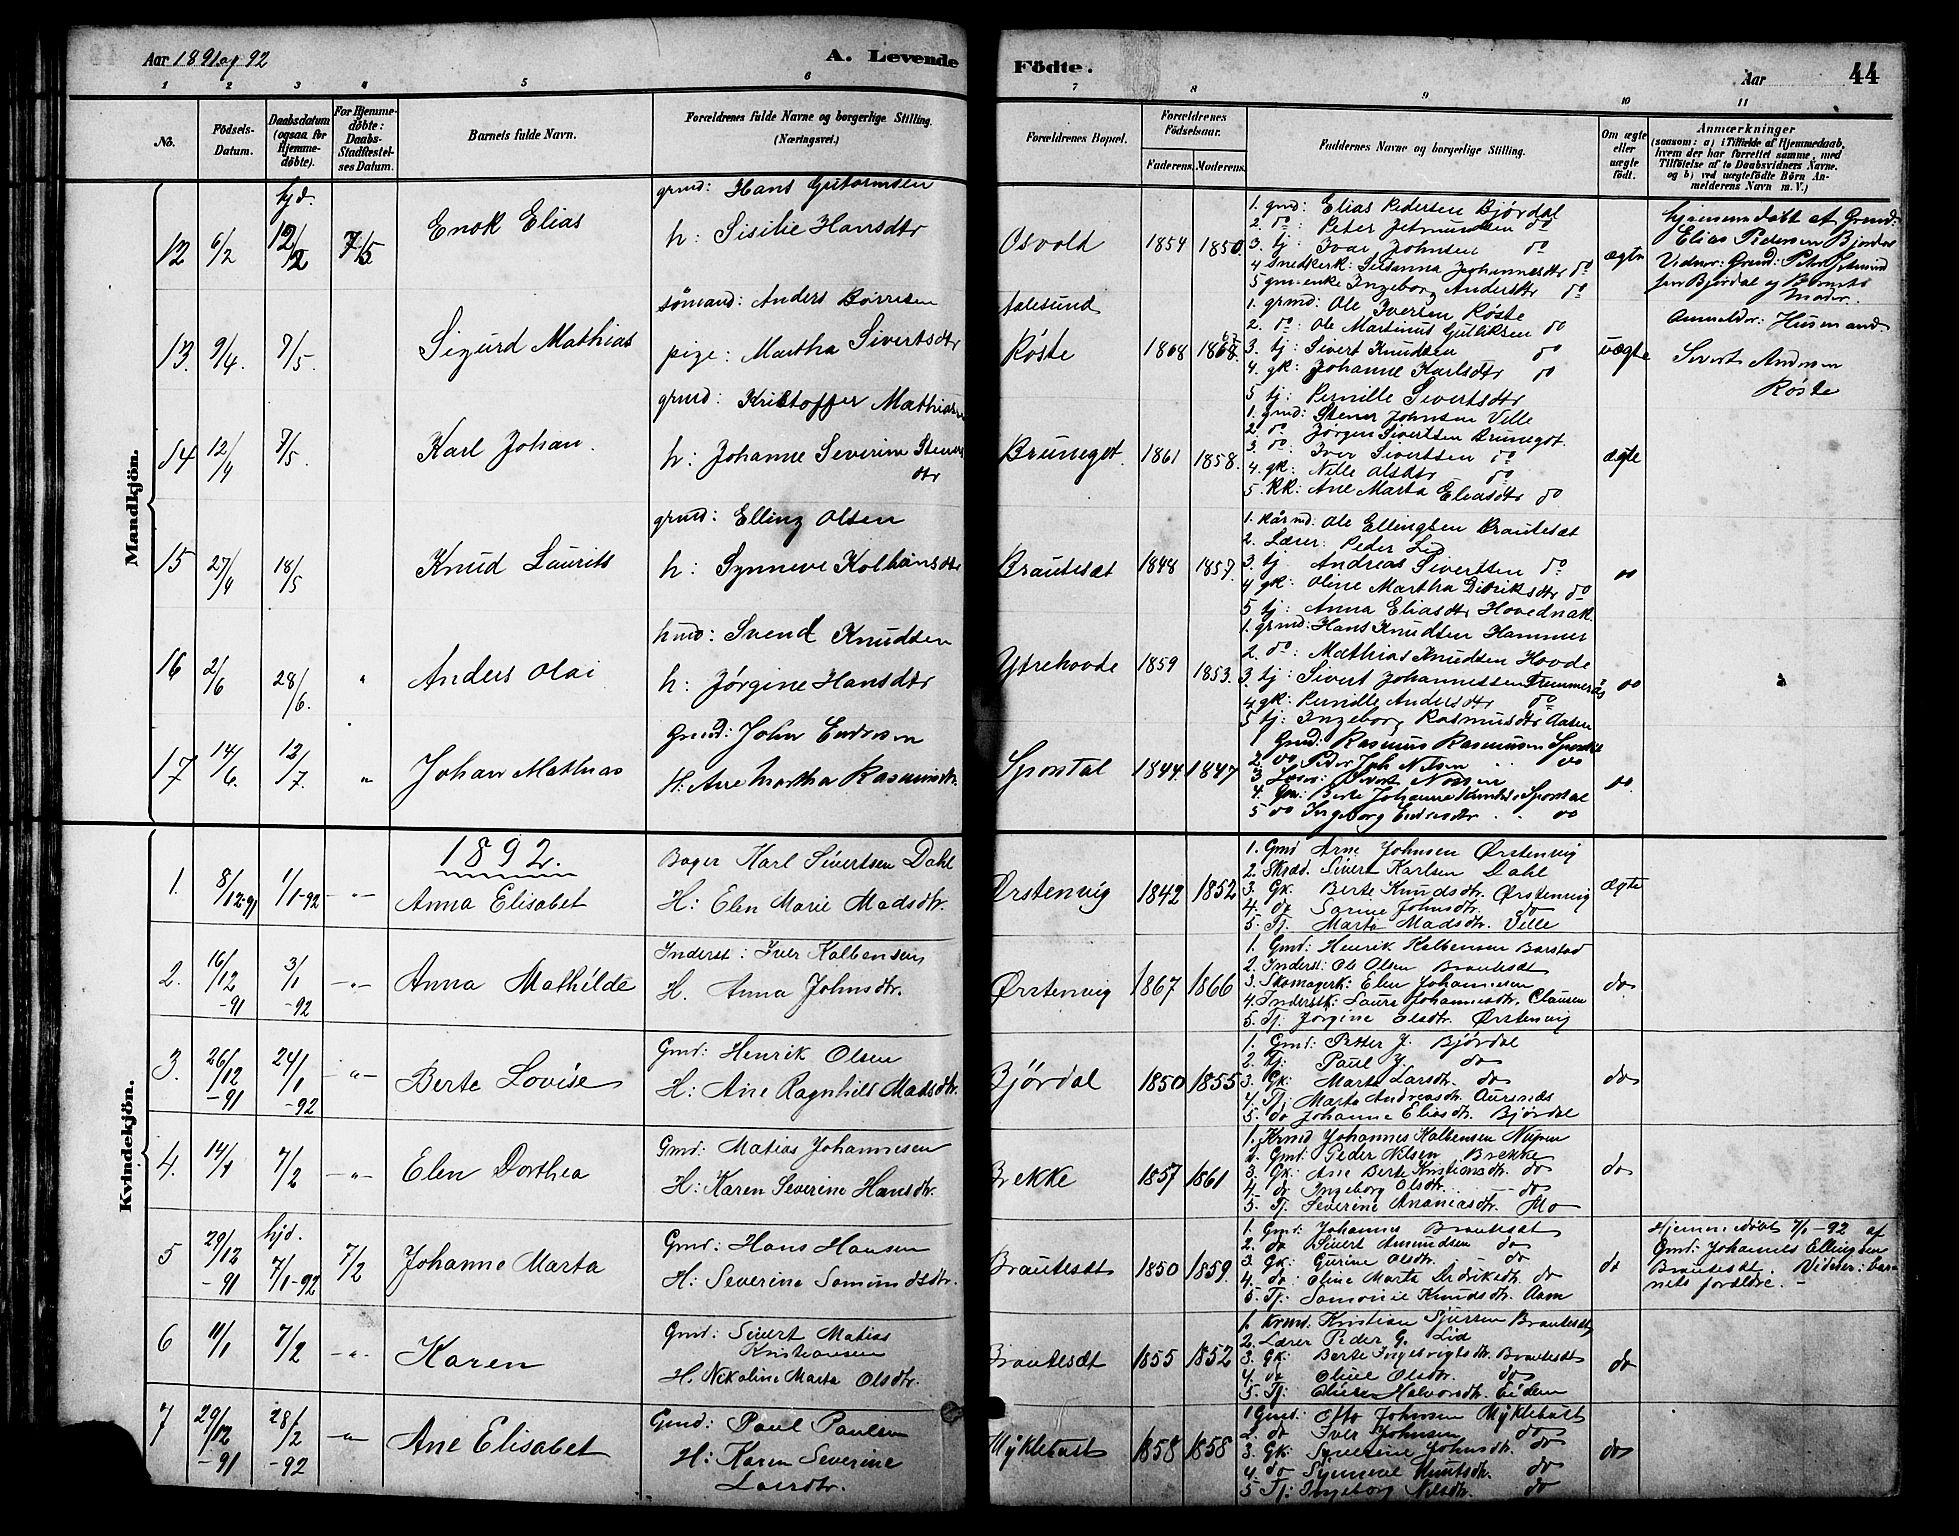 Aar 1891 og 92
A. Levende Födte.
Aar
44
1 2 3 4 5 6 7 8 9 10 11
No.
Födsels-Datum.
Daabsdatum (ogsaa for Hjemmedöbte).
For Hjemmedöbte: Daabs-Stadfæstelses Datum.
Barnets fulde Navn.
Forældrenes fulde Navne og borgerlige Stilling. (Næringsvei.)
Forældrenes Bopæl.
Forældrenes Födselsaar.
Faderens. Moderens.
Faddernes Navne og borgerlige Stilling.
Om ægte eller uægte födt.
Anmærkninger
(saasom: a) i Tilfælde af Hjemmedaab, hvem der har forrettet samme, med Tilföielse af to Daabsvidners Navne. og b) ved uægtefödte Börn Anmelderens Navn m. V.)
Mandkjön.
12 6/2 hjd. 12/2 7/5 Enok Elias
grmd: Hans Gutormsen
h: Sisilie Hansdtr
Osvold 1854 1850
1. gmd: Elias Pedersen Bjørdal
2. do: Peter Jetmundsen do
3. tj: Ivar Johnsen do
4 snedkerk: Susanna Johannesdtr do
5 gm-enke Ingeborg Andersdtr do
ægte
hjemmedøbt af Grmd:
Elias Pedersen Bjørdal
Vidner: Grmd: Peter Jetmund
sen Bjørdal og Barnets
Moder.
13. 9/4. 7/5. Sigurd Mathias
sömand: Anders Börresen
pige: Martha Sivertsdtr
Aalesund
Røste 1868 1868.
1. grmd: Ole Iversen Røste
2. do: Ole Martinus Gulliksen do
3. tj: Sivert Knudsen do
4. gk: Johanne Karlsdtr do
5 tj: Pernille Sivertsdtr
uægte
Anmelder: Husmand
Sivert Andersen
Røste
14 12/4 7/5. Karl Johan.
grmd: Kristoffer Mathiasen
h: Johanne Severine Steners
dtr
Bruneget. 1861 1858.
1. gmd: Stener Johnsen Ville
2 do Jørgen Sivertsen Bruneget
3. do: Iver Sivertsen do
4. gk: Nille Olsdtr do
5. KK: Ane Marta Eliasdtr do
ægte
15 27/4 18/5 Knud Laurits
grmd: Elling Olsen
h: Synneve Kolbensdtr
Brautesæt 1848 1857.
1. kårmd: Ole Ellingsen Brautesæt
2. Lærer: Peder Lid
3. tj Andreas Sivertsen do
4 gk: Oline Martha Didriksdtr do
5 tj: Anna Eliasdtr Hovednak
do
16 2/6 28/6. " Anders Olai
hmd: Svend Knudsen
h: Jørgine Hansdtr
Ytrehovde 1859 1853.
1. grmd: Hans Knudsen Hammer
2. do: Mathias Knudsen Hovde
3. tj: Sivert Johannessen
4 gk: Pernille Andersdtr do
5 tj: Ingeborg Rasmusdtr Aasen
do
17 14/6. 12/7. " Johan Mathias
Grmd: John Endresen
H: Ane Martha Rasmusdtr.
Sporstøl 1844 1847
Gmd: Rasmus Rasmussen
2 do Peder Joh Nilsen do
4. Gm: Berte Johanne
5 do Ingeborg Endresdtr. do
do
Kvindekjön.
1892.
1. 8/12-91 1/1-92 -"- Anna Elisabet
Bager Karl Sivertsen Dahl
H: Elen Marie Madsdtr.
Ørstenvig 1842 1852
1. Gmd Arne Johnsen Ørstenvig
2. Skræd. Sivert Karlsen Dahl
3. Gk. Berte Knudsdtr. Ørstenvig
4. do Sarine Johnsdtr. do
5. Tj. Marta Madsdtr. Ville
ægte
2. 16/12-91 3/1-92 -"- Anna Mathilde
Inderst: Iver Kolbensen
H. Anna Johnsdtr.
Ørstenvig 1867 1866
1. Gmd: Henrik Kolbensen Barstad
2. Inderst: Ole Olsen Brautesæt
3. Skomagerk: Elen Johannesen
4. Inderstk: Laura Johannesdtr. Clausen
5. Tj. Jørgine Olsdtr. Ørstenvig
do
3. 26/12-91 24/1-92 -"- Berte Lovise
Gmd: Henrik Olsen
H: Ane Ragnhild Madsdtr.
Bjørdal 1850 1855
1. Gmd: Petter J. Bjørdal
2. Tj: Paul J. do
3. Gk: Marta Larsdtr. do
4. Tj. Marta Andreasdtr. Aursnæs
5. do Johanne Eliasdtr. Bjørdal
do
4. 14/1 7/2 -"- Elen Dorthea
Gmd: Matias Johannesen
H: Karen Severine Hansdtr.
Brekke 1857 1861
1. Krmd Johannes Kolbensen Nupen
2. Gmd: Peder Nilsen Brekke
3. Gk: Ane Berte Kristiansdtr. do
4. do Ingeborg Olsdtr. do
5. Tj. Severine Ananiasdtr. Mo
do
5 29/12-91 hjd. 7/1-92 7/2 Johanne Marta
Gmd: Hans Hansen
H: Severine Samundsdtr.
Brautesæt 1850 1859.
1. Gmd: Johannes Brautesæt
2. do Sivert Asmundsen do
3. Gk: Gurine Olsdtr. do
4. do: Oline Marta Dedriksdtr. do
5. Tj: Samonie Knudsdtr. Aam
do
Hjemmedøbt 7/1-92 af
Gmd: Johannes Ellingsen
Brautesæt. Vidner: bar-
nets forældre. -
6 11/1 7/2 -"- Karen
Gmd: Sivert Matias
Kristiansen
H. Nikoline Marta Olsdtr.
Brautesæt 1855 1852
1. Krmd. Kristian Sjursen Brautesæt
2. Lærer Peder G. Lid
3. Gk: Berte Ingebrigtsdtr. Brautesæt
4. do Oline Olsdtr. do
5. Tj: Halvorsdtr. Eidem
do
7 29/12-91 28/2-92 -"- Ane Elisabet
Gmd: Paul Paulsen
H: Karen Severine
Larsdtr.
Myklebust 1858 1858
1 Gmd: Otto Johnsen Myklebust
2. do Iver Johnsen do
3. Gk: Synerine Johnsdtr. do
4. do Synneve Knutsdtr. do
5 Tj: Ingeborg Nilsdtr. do
do